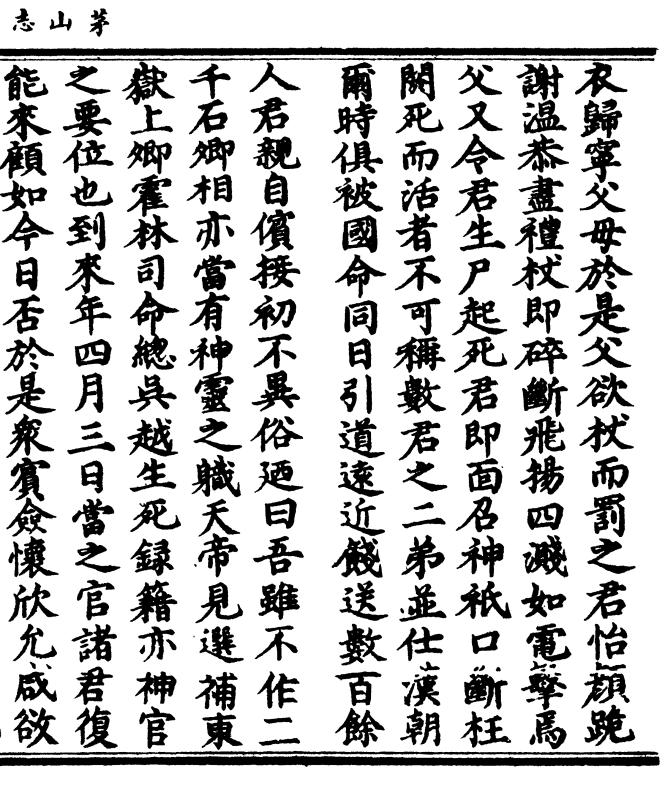 茅山志
衣歸寧父母於是父欲杖而罰之君怡顏跪
謝温恭盡禮杖即碎斷飛揚四濺如電擊焉
父又令君生尸起死君即面召神祇口斷枉
闕死而活者不可稱數君之二弟並仕漢朝
爾時俱被國命同日引道遠近餞送數百餘
人君親自儐接初不異俗廼曰吾雖不作二
千石卿相亦當有神靈之軄天帝見選補東
嶽上卿霍林司命總吳越生死録籍亦神官
之要位也到來年四月三日當之官諸君復
能來顧如今日否於是衆賓僉懷欣允咸欲